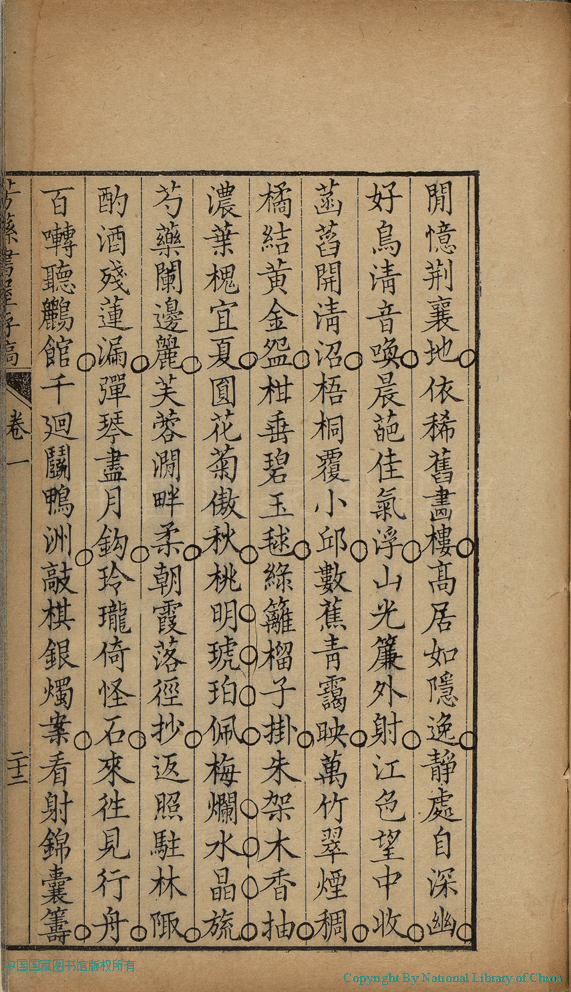 閒憶荆襄地依稀舊畵樓髙居如隱逸靜處自深幽
好鳥清音喚晨葩佳氣浮山光簾外射江色望中收
菡萏開清沼梧桐覆小邱數蕉青靄映萬竹翠煙稠
橘結黄金盌柑垂碧玉毬綠籬榴子掛朱架木香抽
濃葉槐宜夏圓花菊傲秋桃明琥珀佩梅爛水晶旒
芍藥闌邊麗芙蓉澗畔柔朝霞落徑抄返照駐林陬
酌酒殘蓮漏彈琴盡月鈎玲瓏倚怪石來徃見行舟
百囀聽鸝館千廻鬭鴨洲敲棋銀燭案看射錦囊籌
卷一
二十二
中国国家图书馆版权所有
Copyright By National Library of China